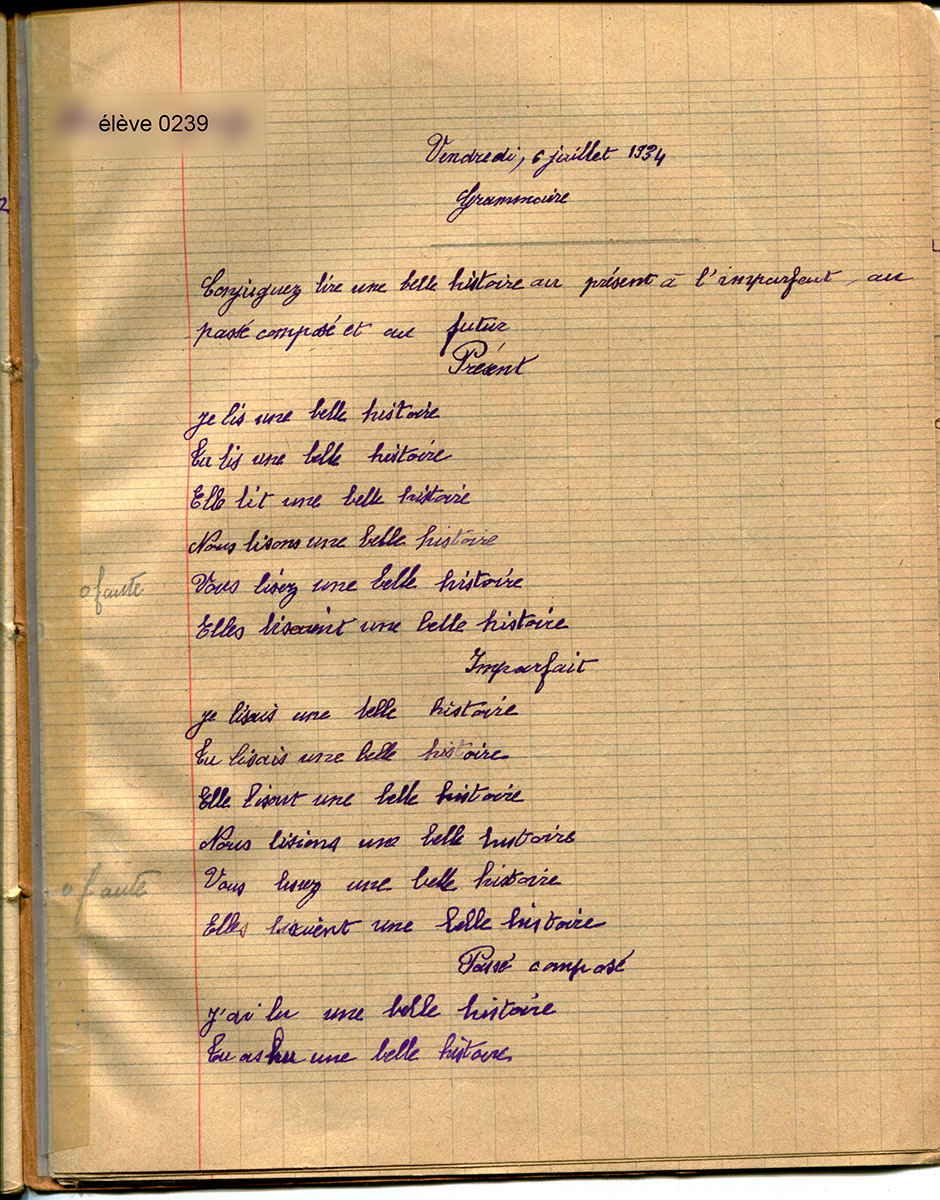 élève 0239
Vendredi, 6 juillet 1934
Grammaire
Conjuguez lire une belle histoire au présent à l'imparfait, au
passé composé et au futur
Présent
Je lis une belle histoire
Tu lis une belle histoire
Elle lit une belle histoire
Nous lisons une belle histoire
0 faute
Vous lisez une belle histoire
Elles lisaient une belle histoire
Imparfait
Je lisais une belle histoire
Tu lisais une belle histoire
Elle lisait une belle histoire
Nous lisions une belle histoire
0 faute
Vous lisiez une belle histoire
Elles lisaient une belle histoire
Passé composé
J'ai lu une belle histoire
Tu as lu une belle histoire